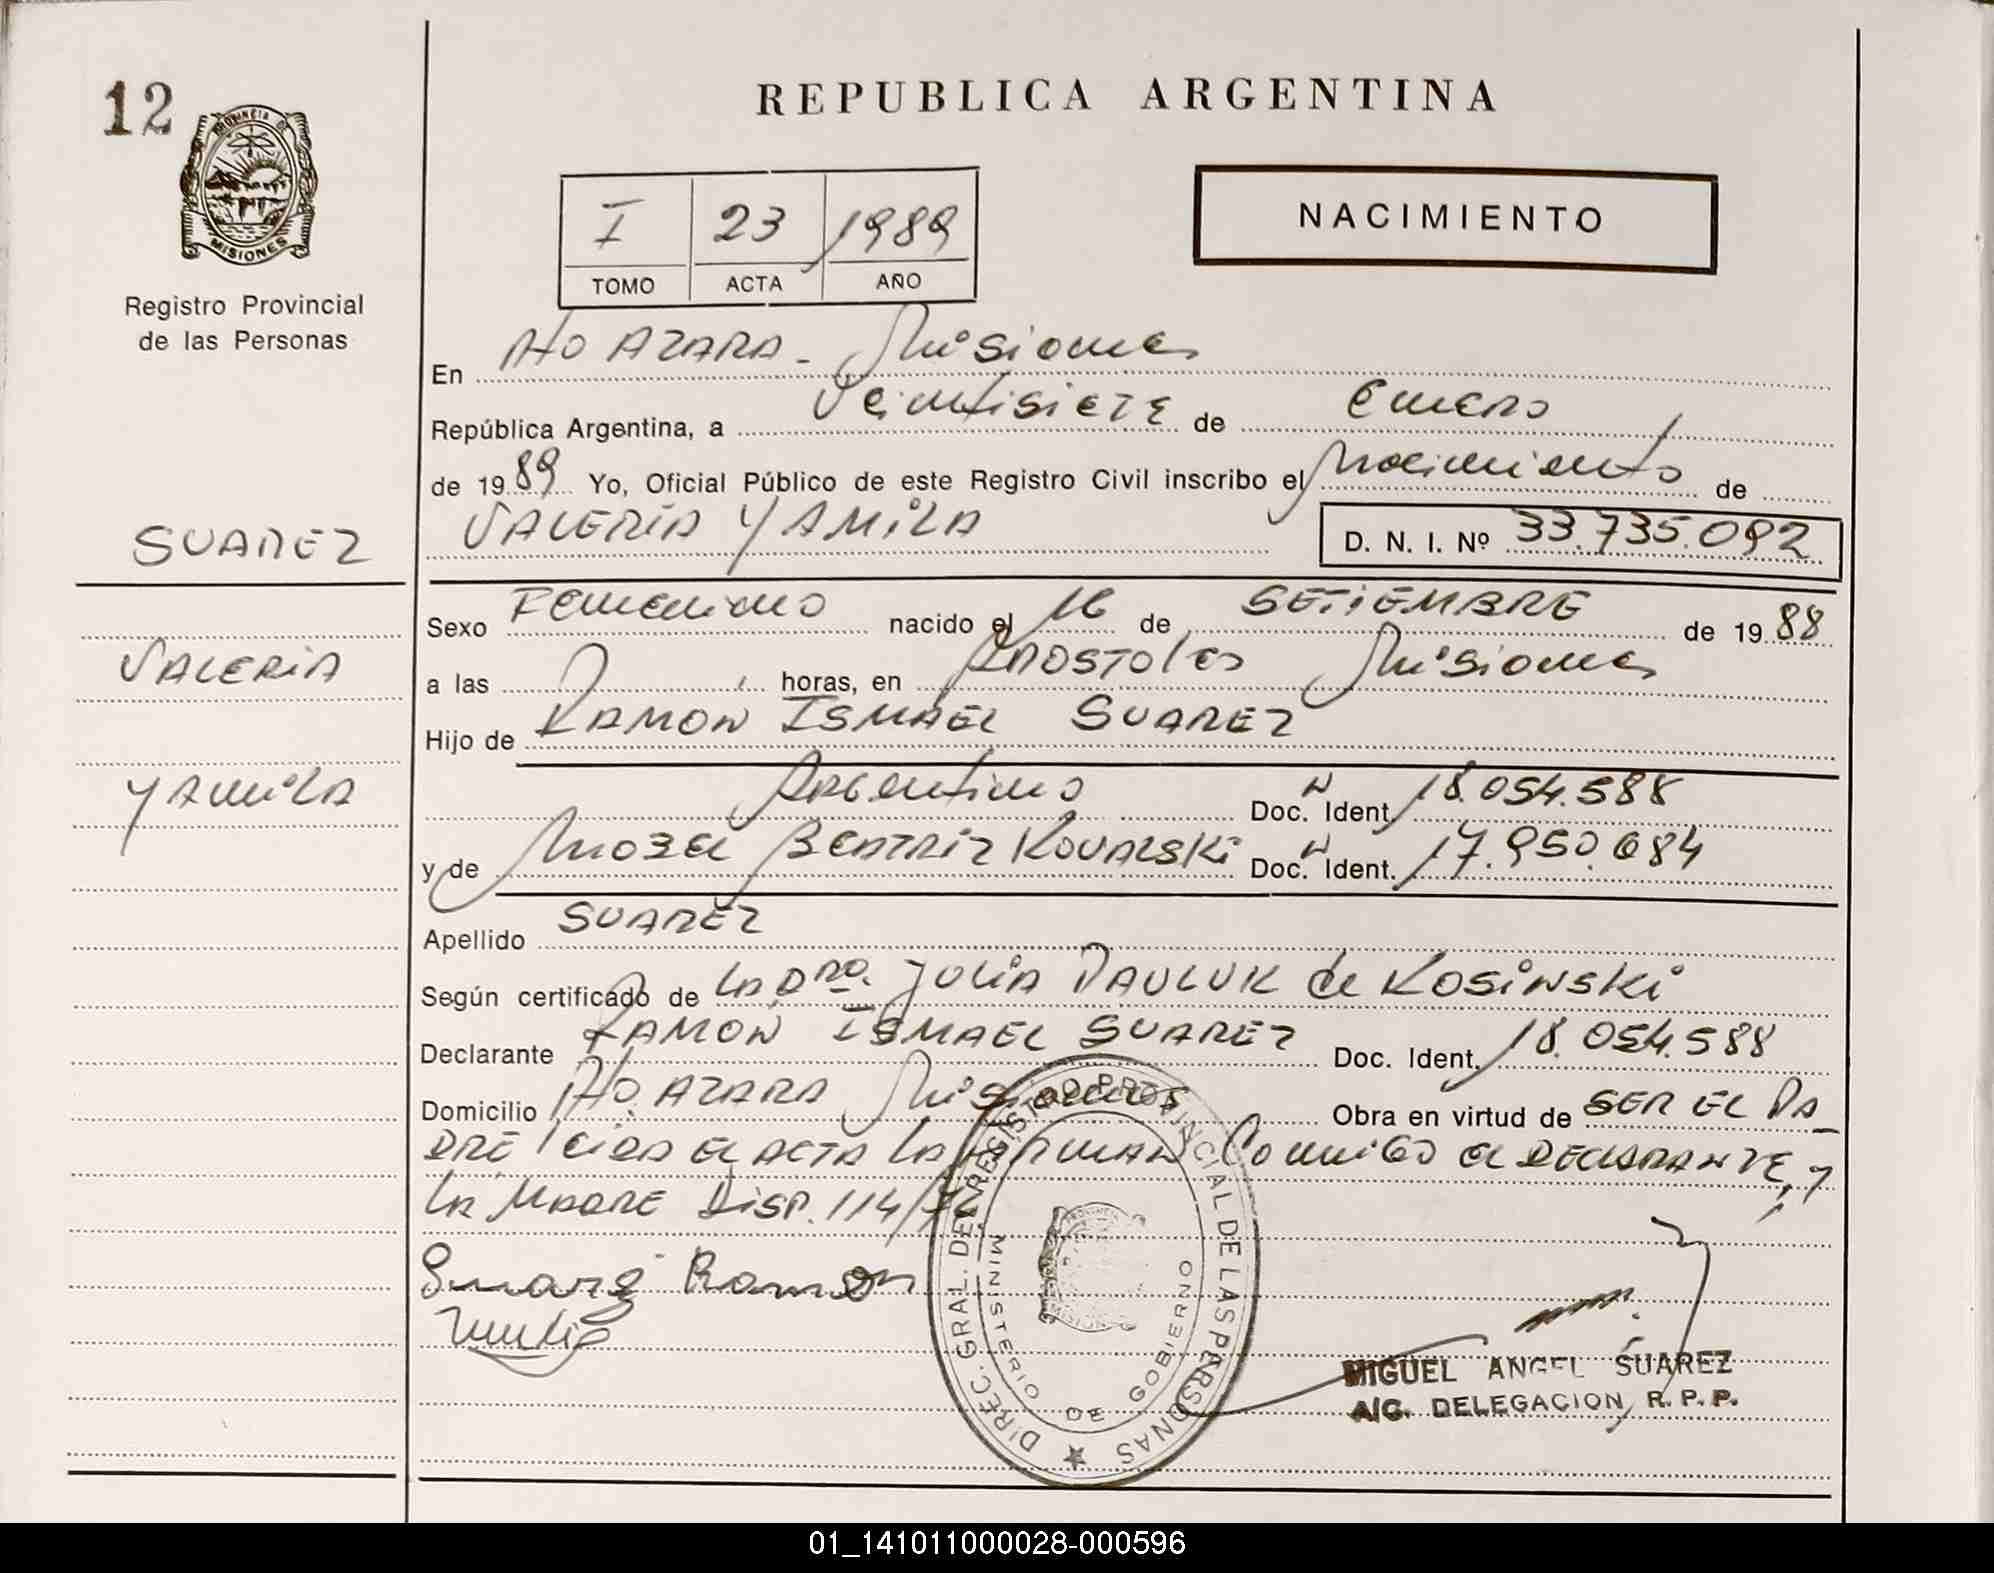 12
PROVINCIA DE
MISIONES
Registro Provincial
de las Personas
SUAREZ
VALERIA
YAMILA
REPUBLICA ARGENTINA
I 23 1989
TOMO ACTA AÑO
NACIMIENTO
En Aº AZARA - Misiones
República Argentina, a Veintisiete de Enero
de 1989 Yo, Oficial Público de este Registro Civil inscribo el Nacimiento de
VALERIA YAMILA D. N. I. Nº 33.735.092
Sexo Femenino nacido el 16 de SETIEMBRE de 1988
a las 7 horas, en APOSTOLES Misiones
Hijo de RAMON ISMAEL SUAREZ
Argentino Doc. N Ident. 18.054.588
y de BEATRIZ KOVALSKI Doc. N Ident. 17.950.684
Apellido SUAREZ
Según certificado de LA Dra. JULIA PAULUK de KOSINSKI
Declarante RAMON ISMAEL SUAREZ Doc. Ident. 18.054.588
Domicilio Aº AZARA Misiones Obra en virtud de SER EL PA_
DRE LEIDA EL ACTA LA FIRMAN Conmigo el DECLARANTE, y
LA MADRE DISP. 114/
Suarez Ramon
DIREC. GRAL. DEL REGISTRO PROVINCIAL DE LAS PERSONAS
MINISTERIO DE GOBIERNO
MIGUEL ANGEL SUAREZ
A/C. DELEGACION R. P. P.
01_141011000028-000596